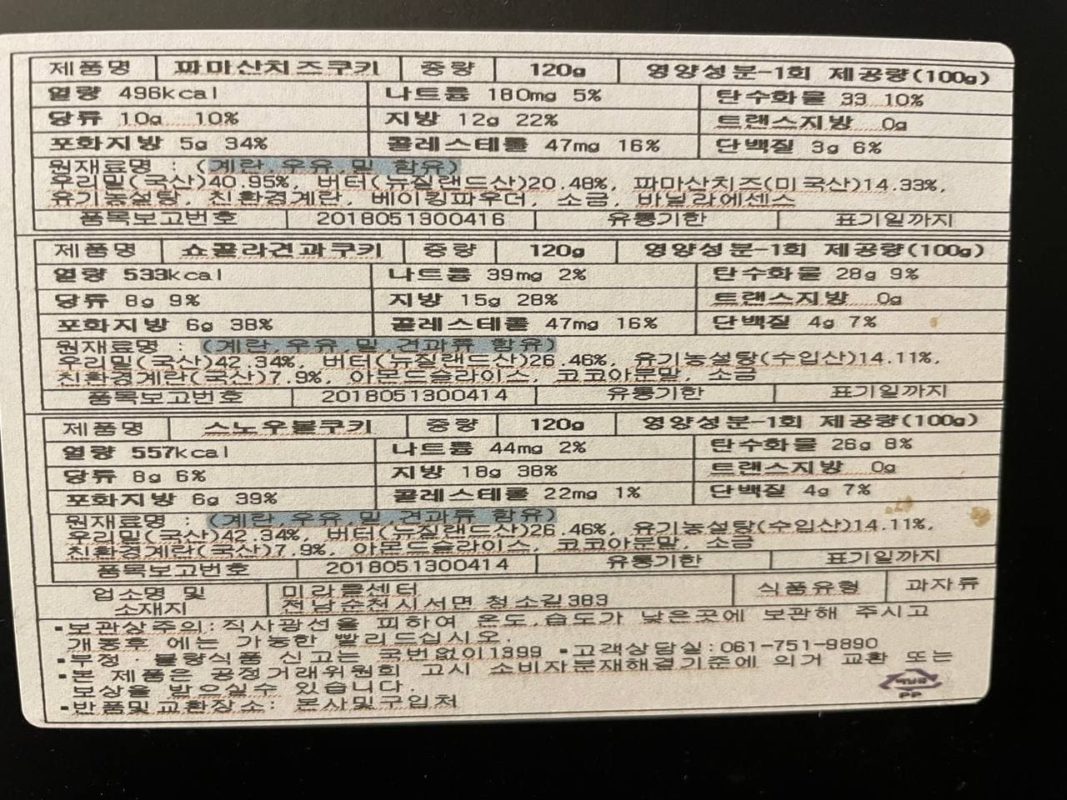 제품명 파마산치즈쿠키 중량 120g 영양성분-1회 제공량(100g)
열량 496kcal 나트륨 180mg 5% 탄수화물 33 10%
당류 10g 10% 지방 12g 22% 트랜스지방 0g
포화지방 5g 34% 콜레스테롤 47mg 16% 단백질 3g 6%
원재료명 : (계란,우유,밀 함유)
우리밀(국산)40.95%, 버터(뉴질랜드산)20.48%, 파마산치즈(미국산)14.33%,
유기농설탕, 친환경계란, 베이킹파우더, 소금, 바닐라에센스
품목보고번호 2018051300416 유통기한 표기일까지
제품명 쇼콜라견과쿠키 중량 120g 영양성분-1회 제공량(100g)
열량 533kcal 나트륨 39mg 2% 탄수화물 28g 9%
당류 8g 9% 지방 15g 28% 트랜스지방 0g
포화지방 6g 38% 콜레스테롤 47mg 16% 단백질 4g 7%
원재료명 : (계란,우유 및 견과류 함유)
우리밀(국산)42.34%, 버터(뉴질랜드산)26.46%, 유기농설탕(수입산)14.11%,
친환경계란(국산)7.9%, 아몬드슬라이스, 코코아분말, 소금
품목보고번호 2018051300414 유통기한 표기일까지
제품명 스노우볼쿠키 중량 120g 영양성분-1회 제공량(100g)
열량 557kcal 나트륨 44mg 2% 탄수화물 26g 8%
당류 8g 6% 지방 18g 38% 트랜스지방 0g
포화지방 6g 39% 콜레스테롤 22mg 1% 단백질 4g 7%
원재료명 : (계란,우유,밀 견과류 함유)
우리밀(국산)42.34%, 버터(뉴질랜드산)26.46%, 유기농설탕(수입산)14.11%,
친환경계란(국산)7.9%, 아몬드슬라이스, 코코아분말, 소금
품목보고번호 2018051300414 유통기한 표기일까지
업소명 및 소재지 미라클센터 식품유형 과자류
전남순천시서면 청소길383
▪보관상주의:직사광선을 피하여 온도,습도가 낮은곳에 보관해 주시고
개봉후 에는 가능한 빨리드십시오.
▪부정·불량식품 신고는 국번없이1399 ▪고객상담실:061-751-9890
▪본 제품은 공정거래위원회 고시 소비자분쟁해결기준에 의거 교환 또는
보상을 받으실수 있습니다.
▪반품및교환장소: 본사및구입처
비닐류
PP